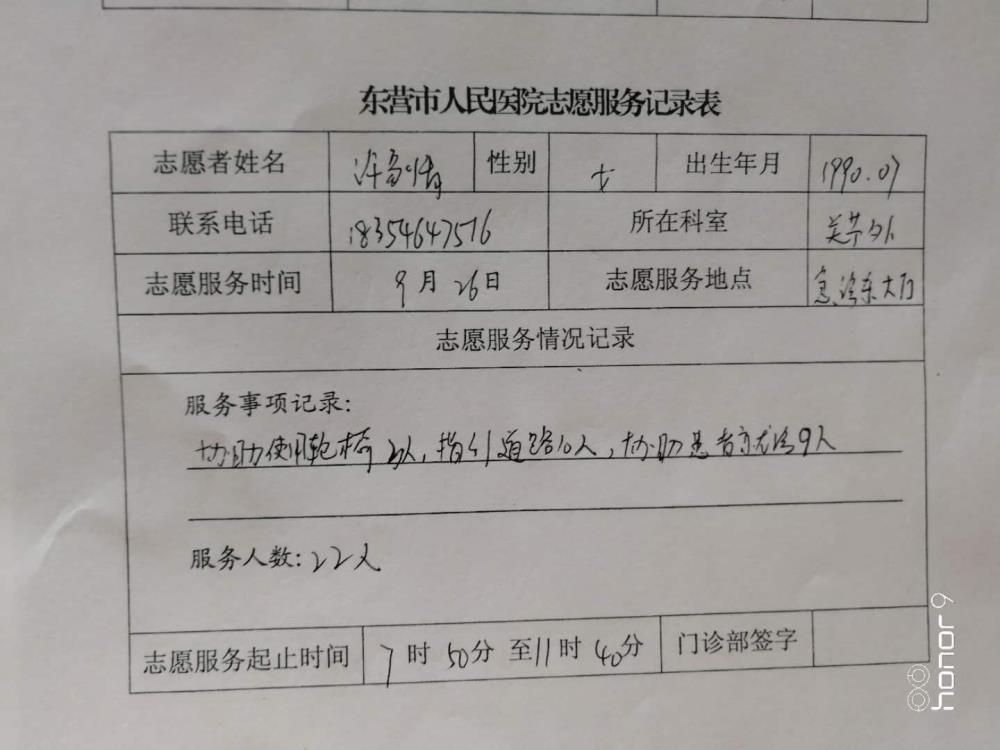 东营市人民医院志愿服务记录表
志愿者姓名 许 性别 女 出生年月 1990.07
联系电话 18354647576 所在科室 关节外
志愿服务时间 9月26日 志愿服务地点 急诊东大厅
志愿服务情况记录
服务事项记录:
协助使用轮椅3人,指引道路10人,协助患者就诊9人
服务人数:22人
志愿服务起止时间 7时50分至11时40分 门诊部签字
honor 9